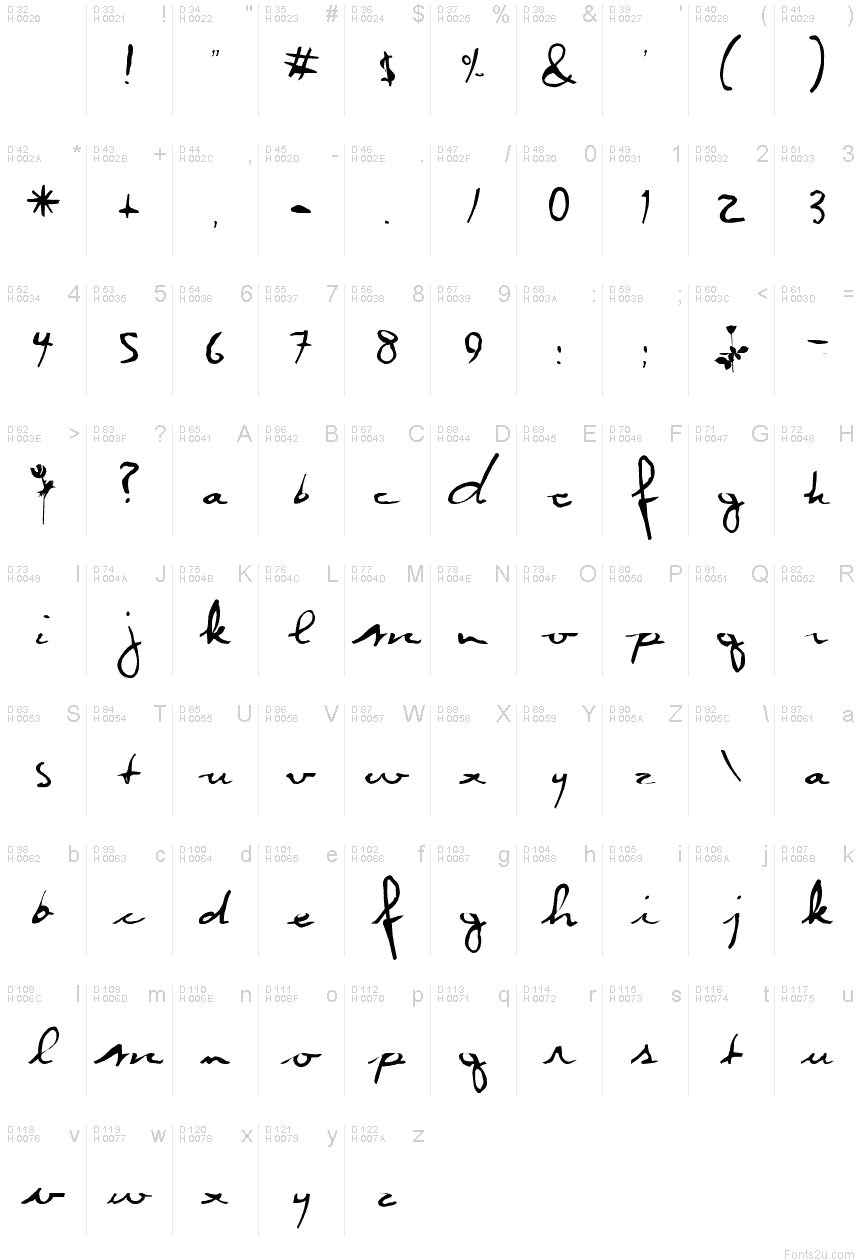 D 32 D 33 ! D 34 " D 35 # D 36 $ D 37 % D 38 & D 39 ' D 40 ( D 41 )
H 0020 H 0021 H 0022 H 0023 H 0024 H 0025 H 0026 H 0027 H 0028 H 0029
! " # $ % & ' ( )
D 42 * D 43 + D 44 , D 45 - D 46 . D 47 / D 48 0 D 49 1 D 50 2 D 51 3
H 002A H 002B H 002C H 002D H 002E H 002F H 0030 H 0031 H 0032 H 0033
* + , - . / 0 1 2 3
D 52 4 D 53 5 D 54 6 D 55 7 D 56 8 D 57 9 D 58 : D 59 ; D 60 < D 61 =
H 0034 H 0035 H 0036 H 0037 H 0038 H 0039 H 003A H 003B H 003C H 003D
4 5 6 7 8 9 : ; =
D 62 > D 63 ? D 65 A D 66 B D 67 C D 68 D D 69 E D 70 F D 71 G D 72 H
H 003E H 003F H 0041 H 0042 H 0043 H 0044 H 0045 H 0046 H 0047 H 0048
? a b c d e f g h
D 73 I D 74 J D 75 K D 76 L D 77 M D 78 N D 79 O D 80 P D 81 Q D 82 R
H 0049 H 004A H 004B H 004C H 004D H 004E H 004F H 0050 H 0051 H 0052
i j k l m n o p q r
D 83 S D 84 T D 85 U D 86 V D 87 W D 88 X D 89 Y D 90 Z D 92 \ D 97 a
H 0053 H 0054 H 0055 H 0056 H 0057 H 0058 H 0059 H 005A H 005C H 0061
s t u v w x y z \ a
D 98 b D 99 c D 100 d D 101 e D 102 f D 103 g D 104 h D 105 i D 106 j D 107 k
H 0062 H 0063 H 0064 H 0065 H 0066 H 0067 H 0068 H 0069 H 006A H 006B
b c d e f g h i j k
D 108 l D 109 m D 110 n D 111 o D 112 p D 113 q D 114 r D 115 s D 116 t D 117 u
H 006C H 006D H 006E H 006F H 0070 H 0071 H 0072 H 0073 H 0074 H 0075
l m n o p q r s t u
D 118 v D 119 w D 120 x D 121 y D 122 z
H 0076 H 0077 H 0078 H 0079 H 007A
v w x y z
Fonts2u.com